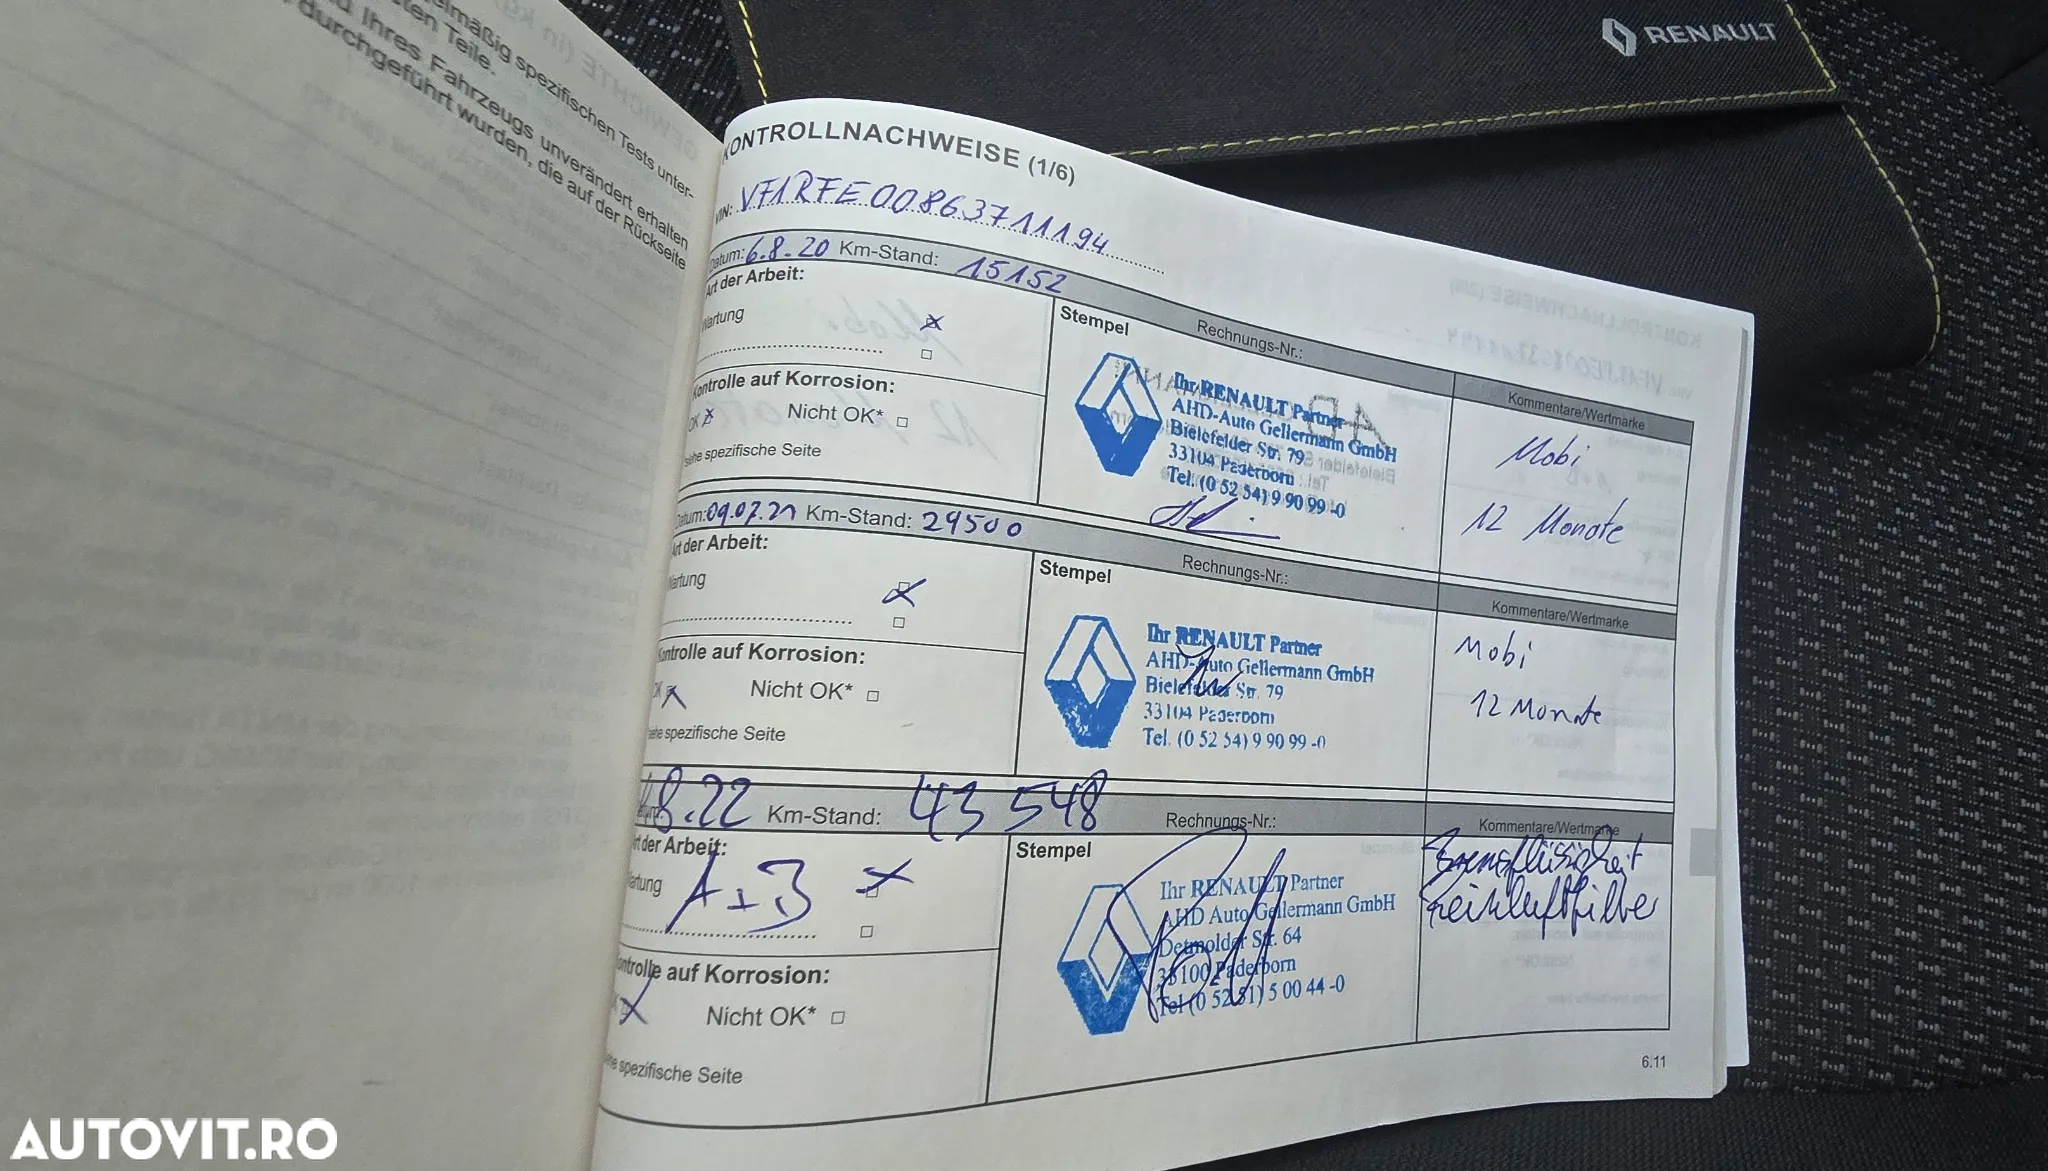 RENAULT
elmäßig spezifischen Tests unter-
ten Teile.
Ihres Fahrzeugs unverändert erhalten
durchgeführt wurden, die auf der Rückseite
KONTROLLNACHWEISE (1/6)
VIN: VF1RFE00863711194
Datum: 6.8.20 Km-Stand: 15152
Art der Arbeit:
Wartung
Stempel
Rechnungs-Nr.:
Kommentare/Wertmarke
Kontrolle auf Korrosion:
OK Nicht OK*
siehe spezifische Seite
Ihr RENAULT Partner
AHD-Auto Gellermann GmbH
Bielefelder Str. 79
33104 Paderborn
Tel. (0 52 54) 9 90 99 -0
Mobi
12 Monate
Datum: 09.07.21 Km-Stand: 29500
Art der Arbeit:
Wartung
Stempel
Rechnungs-Nr.:
Kommentare/Wertmarke
Kontrolle auf Korrosion:
OK Nicht OK*
siehe spezifische Seite
Ihr RENAULT Partner
AHD-Auto Gellermann GmbH
Bielefelder Str. 79
33104 Paderborn
Tel. (0 52 54) 9 90 99 -0
Mobi
12 Monate
8.22 Km-Stand: 43 548
Art der Arbeit:
Wartung A+B
Stempel
Rechnungs-Nr.:
Kommentare/Wertmarke
Kontrolle auf Korrosion:
Nicht OK*
siehe spezifische Seite
Ihr RENAULT Partner
AHD Auto Gellermann GmbH
Detmolder Str. 64
33100 Paderborn
Tel (0 52 51) 5 00 44 -0
Bremsflüssigkeit
6.11
AUTOVIT.RO